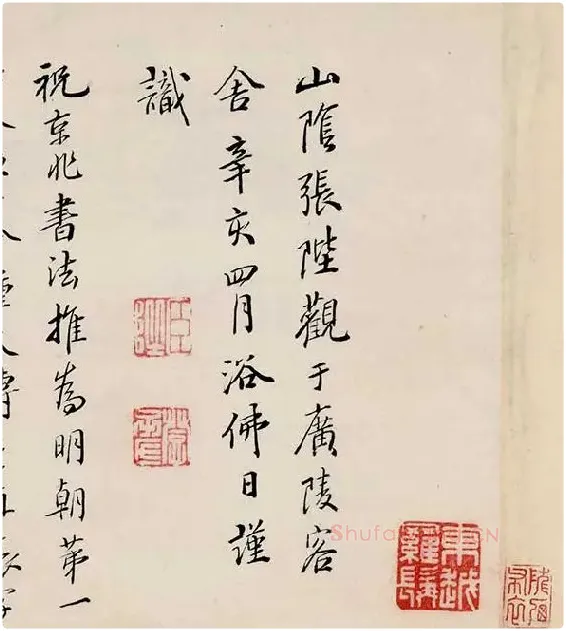 山陰張陛觀于廣陵客
舍辛亥四月浴佛日謹
識
祝京兆書法推為明朝第一